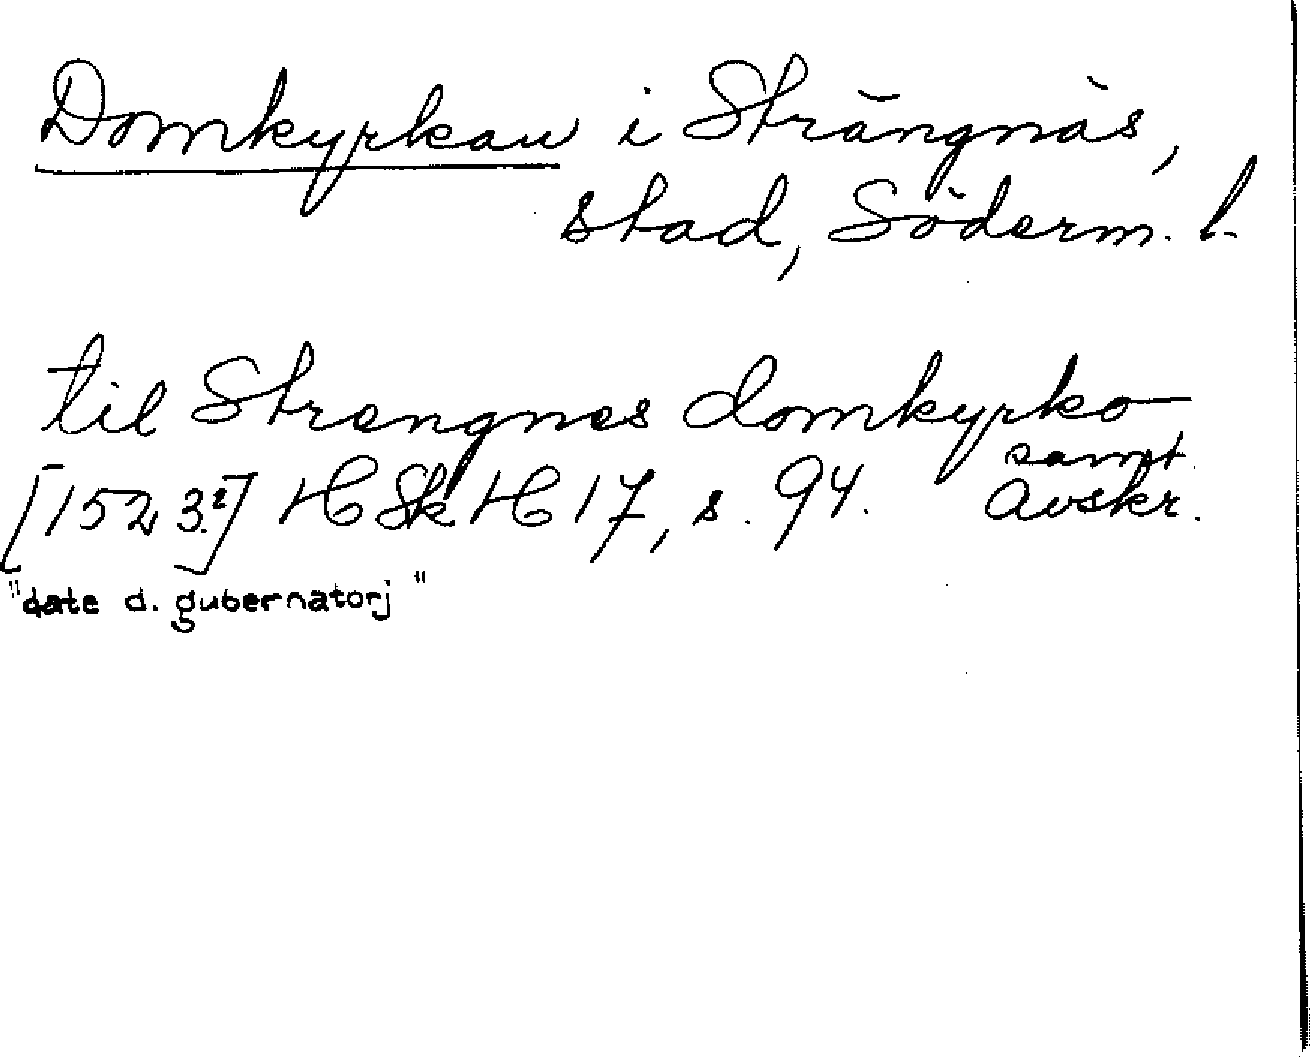 Domkyrkan i Strängnäs,
stad, Söderm. l.
til Strengnes domkyrko
samt.
[1523?] HSkH 17, s. 94. Avskr.
"date d. gubernatorj"